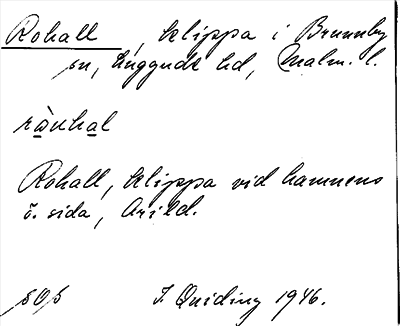 Rohall, klippa i Brunnby
sn, Luggude hd, Malm. l.
ràuhal
Rohall, klippa vid hamnens
ö. sida, Arild.
sOs I. Quiding 1946.